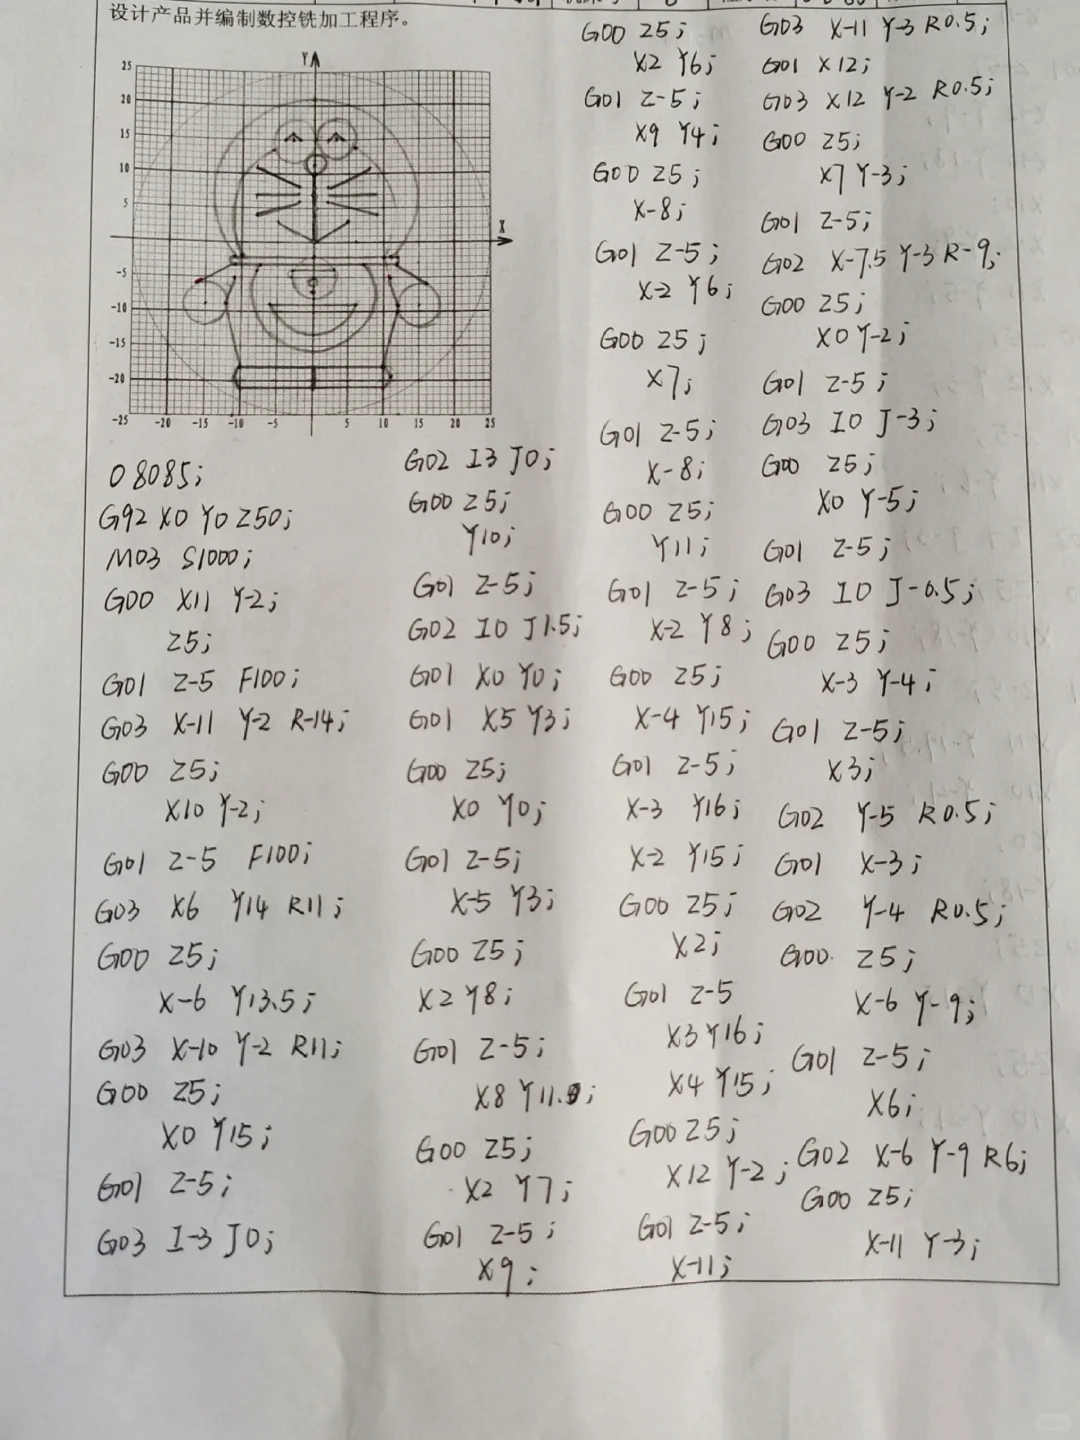 设计产品并编制数控铣加工程序。
Y
25
20
15
10
5
X
-5
-10
-15
-20
-25 -20 -15 -10 -5 5 10 15 20 25
O8085;
G92 X0 Y0 Z50;
M03 S1000;
G00 X11 Y-2;
Z5;
G01 Z-5 F100;
G03 X-11 Y-2 R-14;
G00 Z5;
X10 Y-2;
G01 Z-5 F100;
G03 X6 Y14 R11;
G00 Z5;
X-6 Y13.5;
G03 X-10 Y-2 R11;
G00 Z5;
X0 Y15;
G01 Z-5;
G03 I-3 J0;
G02 I3 J0;
G00 Z5;
Y10;
G01 Z-5;
G02 I0 J1.5;
G01 X0 Y0;
G01 X5 Y3;
G00 Z5;
X0 Y0;
G01 Z-5;
X-5 Y3;
G00 Z5;
X2 Y8;
G01 Z-5;
X8 Y11.;
G00 Z5;
X2 Y7;
G01 Z-5;
X9;
G00 Z5;
X2 Y6;
G01 Z-5;
X9 Y4;
G00 Z5;
X-8;
G01 Z-5;
X-2 Y6;
G00 Z5;
X7;
G01 Z-5;
X-8;
G00 Z5;
Y11;
G01 Z-5;
X-2 Y8;
G00 Z5;
X-4 Y15;
G01 Z-5;
X-3 Y16;
X-2 Y15;
G00 Z5;
X2;
G01 Z-5
X3 Y16;
X4 Y15;
G00 Z5;
X12 Y-2;
G01 Z-5;
X-11;
G03 X-11 Y-3 R0.5;
G01 X12;
G03 X12 Y-2 R0.5;
G00 Z5;
X7 Y-3;
G01 Z-5;
G02 X-7.5 Y-3 R-9;
G00 Z5;
X0 Y-2;
G01 Z-5;
G03 I0 J-3;
G00 Z5;
X0 Y-5;
G01 Z-5;
G03 I0 J-0.5;
G00 Z5;
X-3 Y-4;
G01 Z-5;
X3;
G02 Y-5 R0.5;
G01 X-3;
G02 Y-4 R0.5;
G00 Z5;
X-6 Y-9;
G01 Z-5;
X6;
G02 X-6 Y-9 R6;
G00 Z5;
X-11 Y-3;